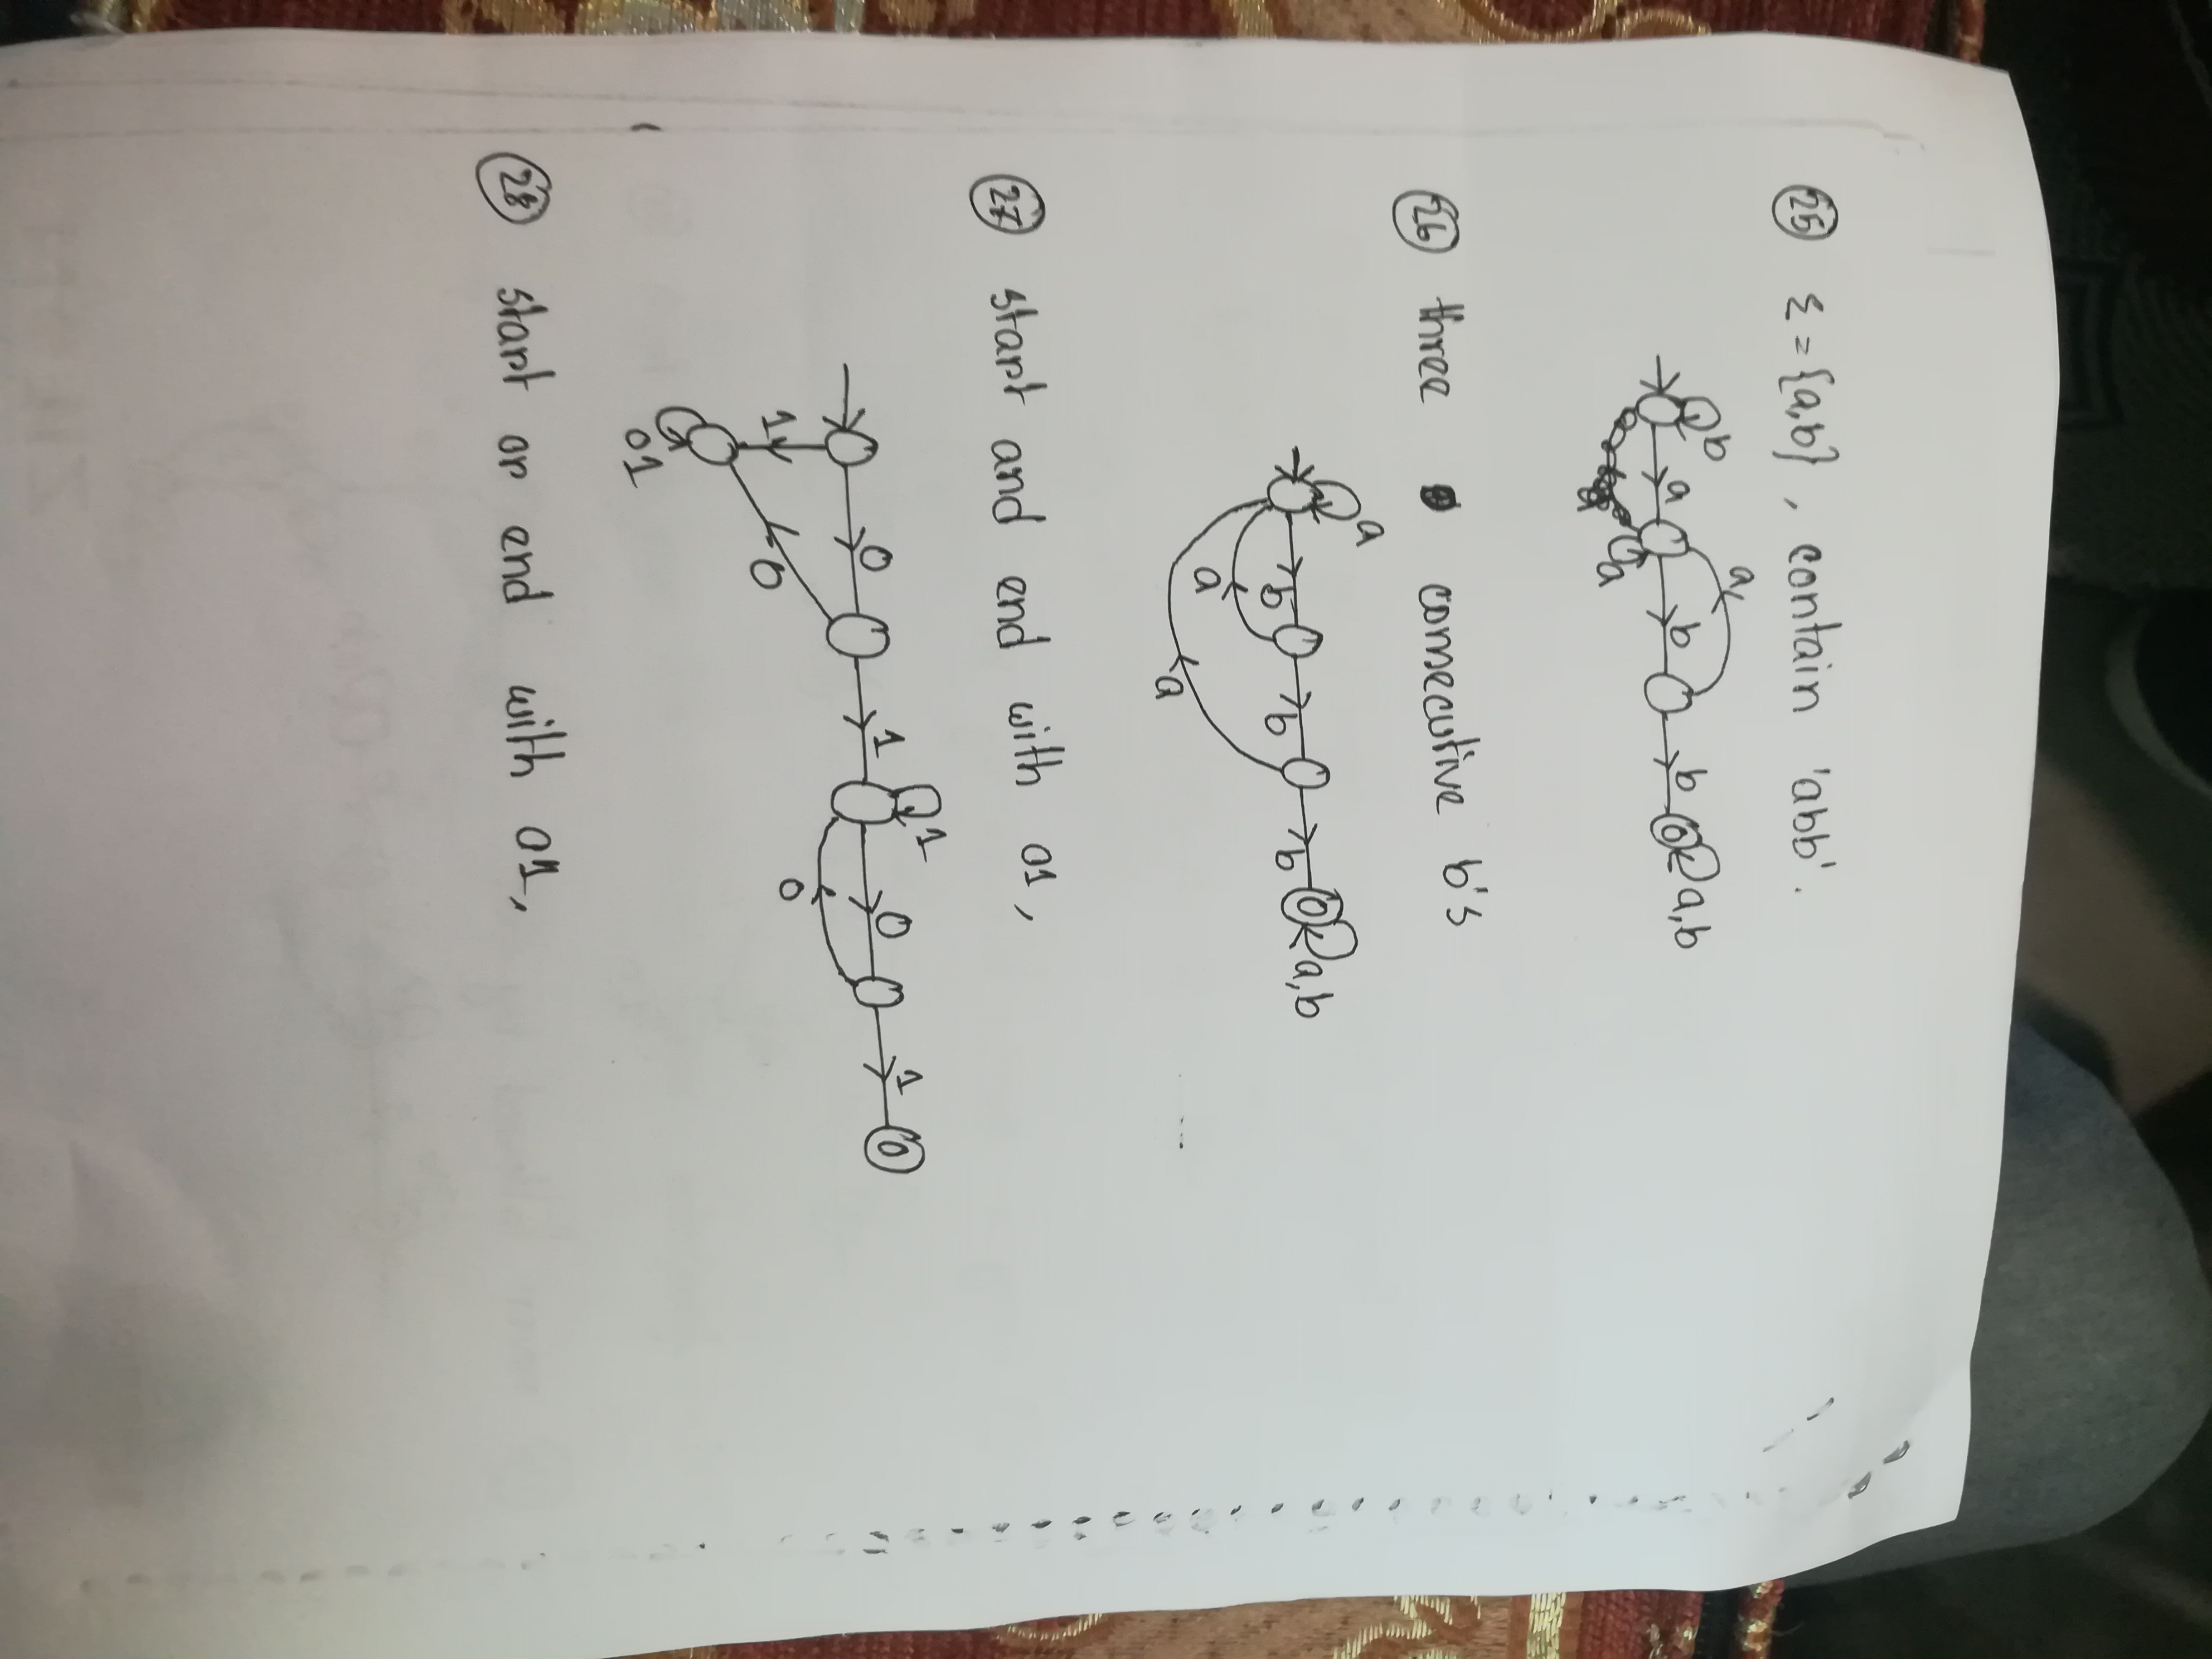 25 Σ = {a,b}, contain 'abb'.
b a a b b a,b
a
26 three consecutive b's
a
b b b a,b
a
a
27 start and end with 01,
0 1 1 0 1
1 0 0
01
28 start or end with 01,